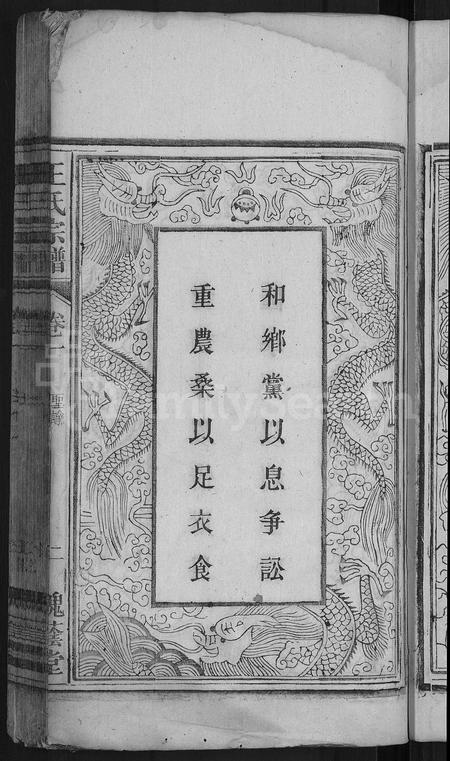 和鄉黨以息爭訟
重農桑以足衣食
王氏宗譜
卷一
聖諭
二
槐蔭堂